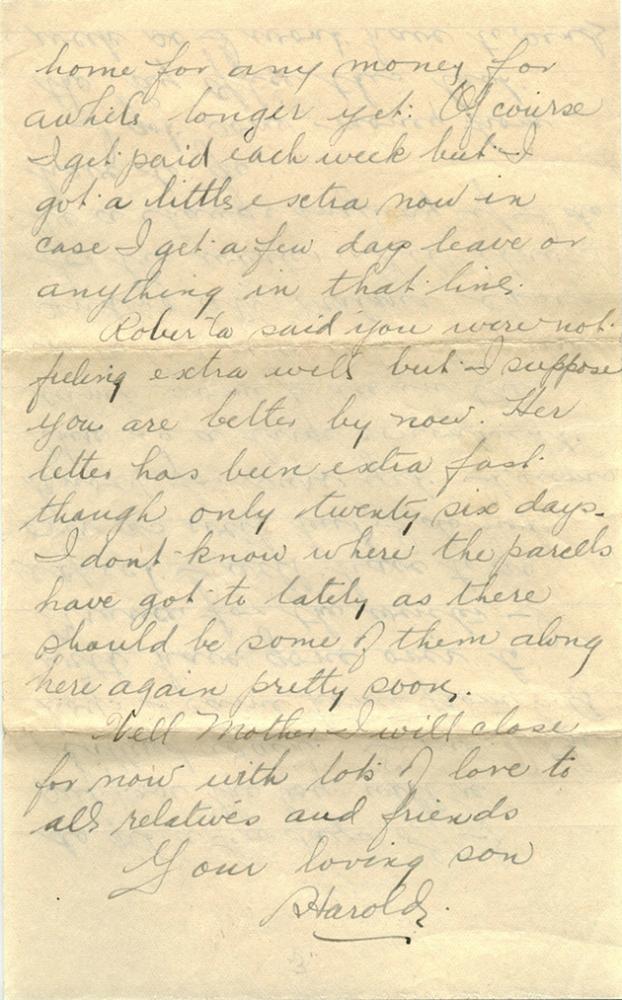 home for any money for
awhile longer yet. Of course
I get paid each week but I
got a little extra now in
case I get a few days leave or
anything in that line.
Roberta said you were not
feeling extra well but I suppose
you are better by now. Her
letter has been extra fast
though only twenty six days.
I dont know where the parcels
have got to lately as there
should be some of them along
here again pretty soon.
Well Mother I will close
for now with lots of love to
all relatives and friends
Your loving son
Harold.